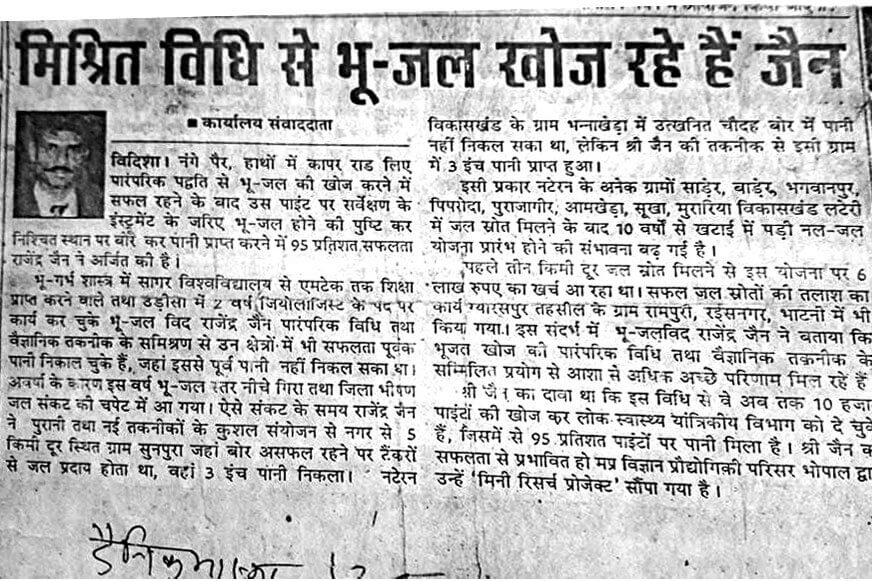 मिश्रित विधि से भू-जल खोज रहे हैं जैन
■ कार्यालय संवाददाता
विदिशा। नंगे पैर, हाथों में कापर राड लिए
पारंपरिक पद्वति से भू-जल की खोज करने में
सफल रहने के बाद उस पाइंट पर सर्वेक्षण के
इंस्ट्रूमेंट के जरिए भू-जल होने की पुष्टि कर
निश्चित स्थान पर बोर कर पानी प्राप्त करने में 95 प्रतिशत सफलता
राजेंद्र जैन ने अर्जित की है।
भू-गर्भ शास्त्र में सागर विश्वविद्यालय से एमटेक तक शिक्षा
प्राप्त करने वाले तथा उड़ीसा में 2 वर्ष जियोलाजिस्ट के पद पर
कार्य कर चुके भू-जल विद राजेंद्र जैन पारंपरिक विधि तथा
वैज्ञानिक तकनीक के समिश्रण से उन क्षेत्रों में भी सफलता पूर्वक
पानी निकाल चुके हैं, जहां इससे पूर्व पानी नहीं निकल सका था।
अवर्षा के कारण इस वर्ष भू-जल स्तर नीचे गिरा तथा जिला भीषण
जल संकट की चपेट में आ गया। ऐसे संकट के समय राजेंद्र जैन
ने पुरानी तथा नई तकनीकों के कुशल संयोजन से नगर से 5
किमी दूर स्थित ग्राम सुनपुरा जहां बोर असफल रहने पर टैंकरों
से जल प्रदाय होता था, वहां 3 इंच पानी निकला। नटेरन
विकासखंड के ग्राम भन्नाखेड़ा में उत्खनित चौदह बोर में पानी
नहीं निकल सका था, लेकिन श्री जैन की तकनीक से इसी ग्राम
में 3 इंच पानी प्राप्त हुआ।
इसी प्रकार नटेरन के अनेक ग्रामों साडेर, बाडेर, भगवानपुर,
पिपरोदा, पुराजागीर, आमखेड़ा, सूखा, मुरारिया विकासखंड लटेरी
में जल स्रोत मिलने के बाद 10 वर्षों से खटाई में पड़ी नल-जल
योजना प्रारंभ होने की संभावना बढ़ गई है।
पहले तीन किमी दूर जल स्रोत मिलने से इस योजना पर 6
लाख रुपए का खर्च आ रहा था। सफल जल स्रोतों की तलाश का
कार्य ग्यारसपुर तहसील के ग्राम रामपुरी, रइंसनगर, भाटनी में भी
किया गया। इस संदर्भ में भू-जलविद राजेंद्र जैन ने बताया कि
भूजत खोज की पारंपरिक विधि तथा वैज्ञानिक तकनीक के
सम्मिलित प्रयोग से आशा से अधिक अच्छे परिणाम मिल रहे हैं
श्री जैन का दावा था कि इस विधि से वे अब तक 10 हजा
पाइंटों की खोज कर लोक स्वास्थ्य यांत्रिकीय विभाग को दे चुके
हैं, जिसमें से 95 प्रतिशत पाइंटों पर पानी मिला है। श्री जैन क
सफलता से प्रभावित हो मप्र विज्ञान प्रौद्योगिकी परिसर भोपाल द्वा
उन्हें 'मिनी रिसर्च प्रोजेक्ट' सौंपा गया है।